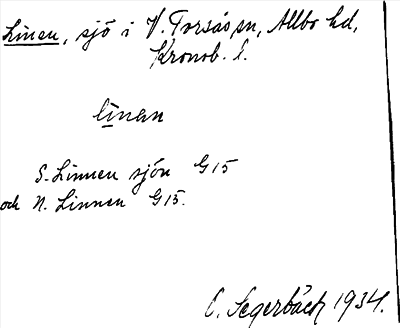 Linen, sjö i V. Torsås sn, Allbo hd,
Kronob. l.
linan
S. Linnen sjön G 15
och N. Linnen G 15.
C. Segerbäck 1934.